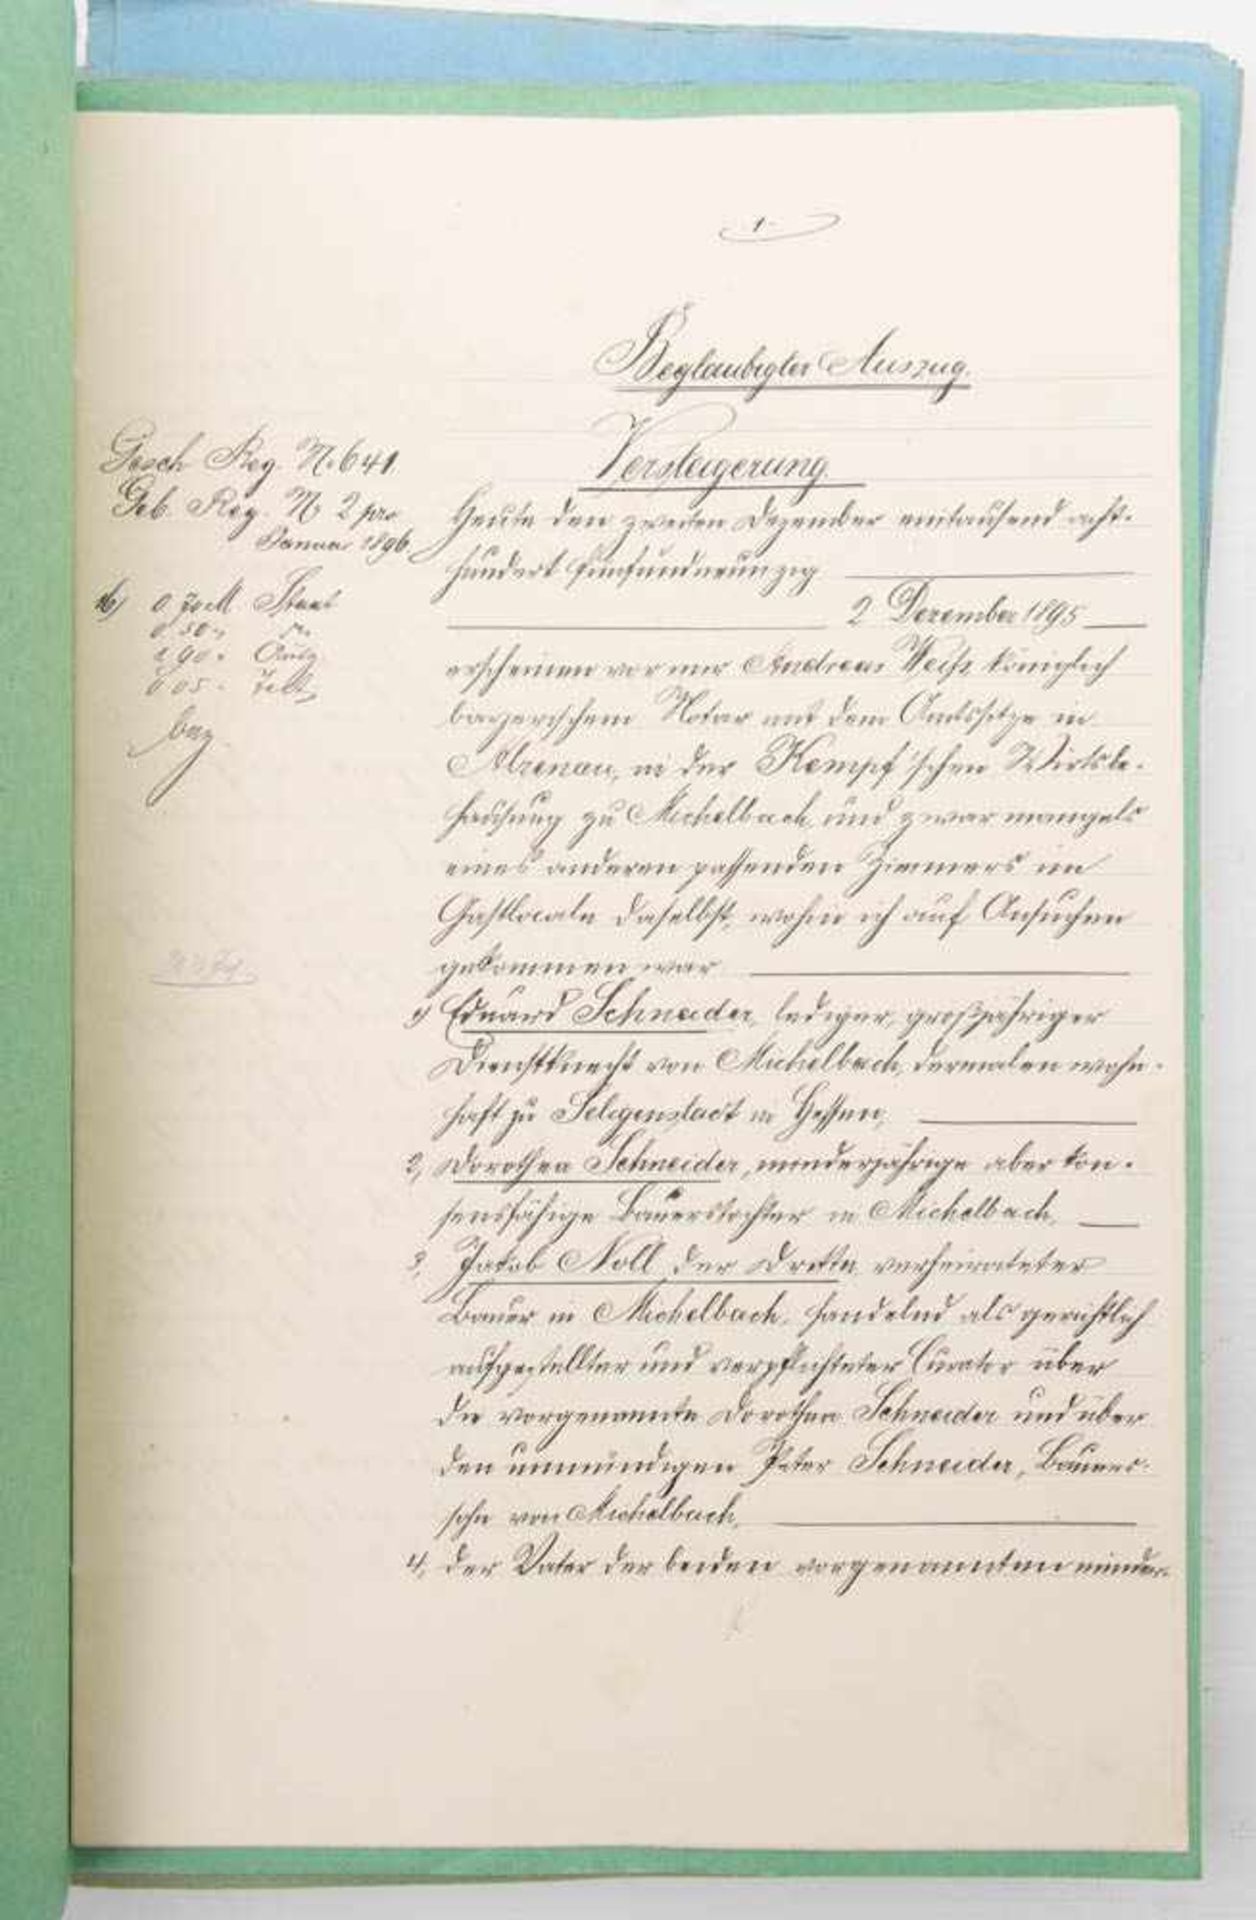 1.
Beglaubigter Auszug.
Gesch Reg. N. 641.
Geb. Reg. N 2 pro
Januar 1896.
16) 0. 70 M. Staat
0 50 "
1 90 "
0 05 "
bez.
Versteigerung.
Heute den zweiten Dezember eintausend acht-
hundert fünfundneunzig
2 Dezember 1895
erscheinen vor mir Andreas Weiß, königlich
bayerischem Notar mit dem Amtssitze in
Alzenau, in der Kempf'schen Wirtsbe-
hausung zu Michelbach und zwar mangels
eines anderen passenden Zimmers im
Gastlocale daselbst, wohin ich auf Ansuchen
gekommen war
1) Eduard Schneider, lediger, großjähriger
Dienstknecht von Michelbach, dermalen wohn-
haft zu Seligenstadt in Hessen,
2, Dorothea Schneider, minderjährige aber kon-
sensfähige Bauerstochter in Michelbach,
3, Jakob Noll der Dritte, verheirateter
Bauer in Michelbach, handelnd als gerichtlich
aufgestellter und verpflichteter Curator über
die vorgenannte Dorothea Schneider und über
den unmündigen Peter Schneider, Bauers-
sohn von Michelbach,
4, der Vater der beiden vorgenannten minder-